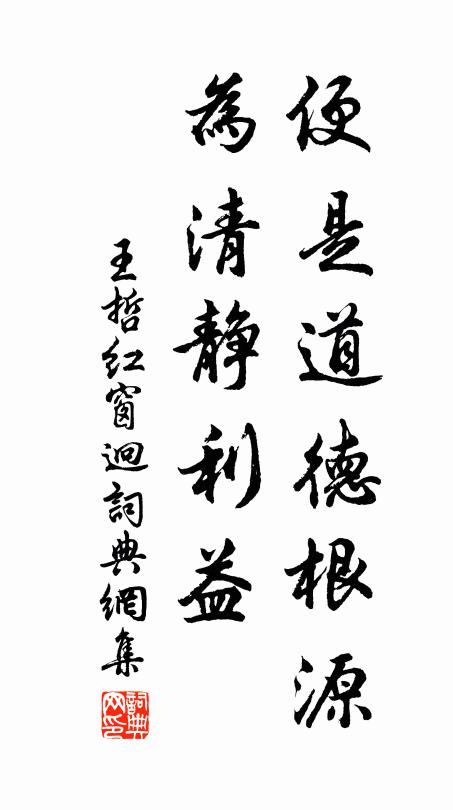 便是道德根源
為清静利益
王哲紅窗迥詞典網集
詞典網印